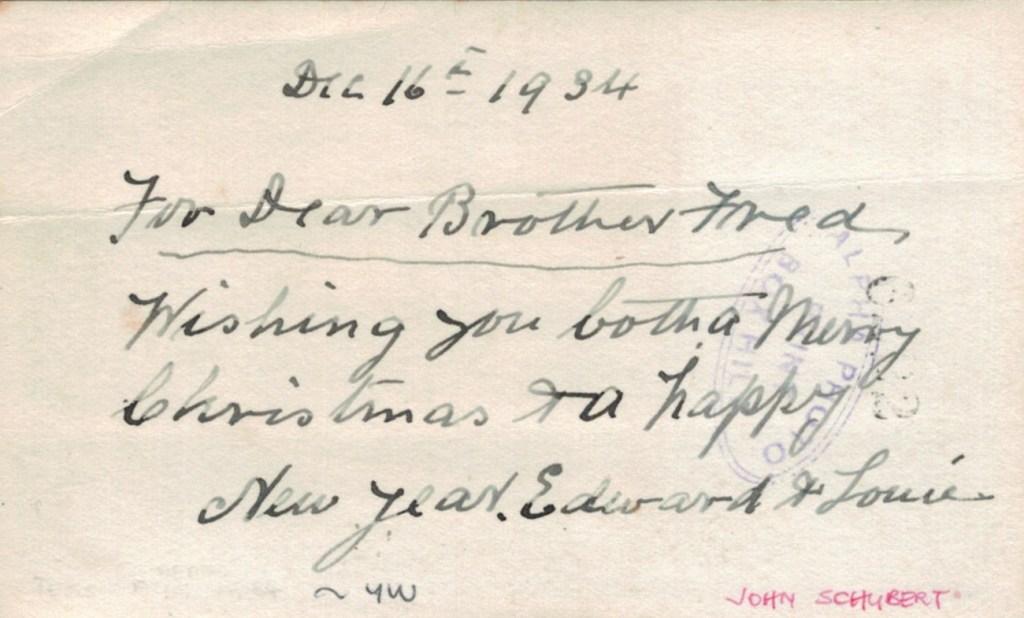 Dec 16th 1934
For Dear Brother Fred,
Wishing you both a Merry
Christmas & a happy
New year. Edward & Louie
~ YW
JOHN SCHUBERT
ALPHA
BOX HILL